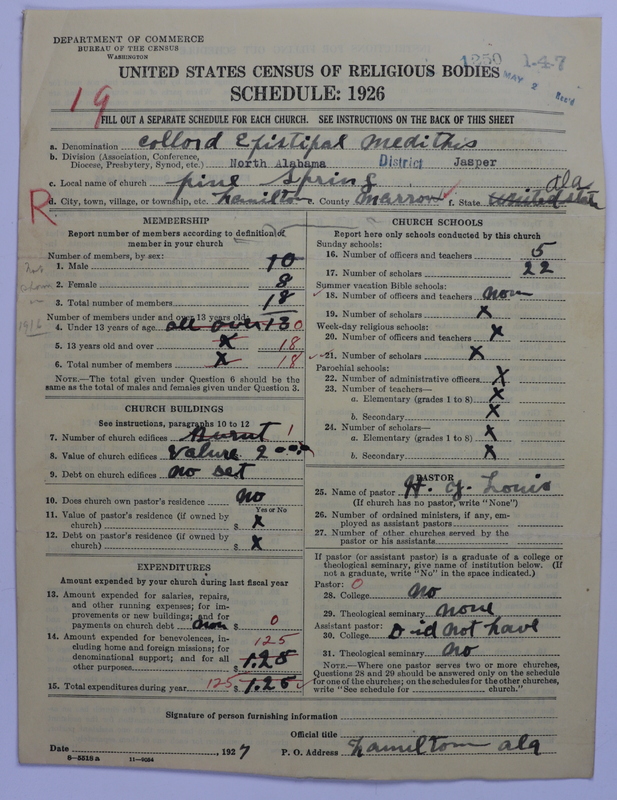 DEPARTMENT OF COMMERCE
BUREAU OF THE CENSUS
WASHINGTON
1250 1-4-7
MAY 2 Rec'd
UNITED STATES CENSUS OF RELIGIOUS BODIES
SCHEDULE: 1926
19
FILL OUT A SEPARATE SCHEDULE FOR EACH CHURCH. SEE INSTRUCTIONS ON THE BACK OF THIS SHEET
a. Denomination Collord Epistipal Medithis
b. Division (Association, Conference, Diocese, Presbytery, Synod, etc.) North Alabama District Jasper
c. Local name of church pine Spring
R d. City, town, village, or township, etc. hamilton e. County Marrow f. State United State ala
MEMBERSHIP
Report number of members according to definition of member in your church
Number of members, by sex:
1. Male 10
2. Female 8
3. Total number of members 18
Number of members under and over 13 years old:
4. Under 13 years of age all over 13 0
5. 13 years old and over X 18
6. Total number of members X 18
NOTE.—The total given under Question 6 should be the same as the total of males and females given under Question 3.
not shown in 1916
CHURCH BUILDINGS
See instructions, paragraphs 10 to 12
7. Number of church edifices Burnt 1
8. Value of church edifices Valure 200
9. Debt on church edifices no det
10. Does church own pastor's residence no
Yes or No
11. Value of pastor's residence (if owned by church) $ X
12. Debt on pastor's residence (if owned by church) $ X
EXPENDITURES
Amount expended by your church during last fiscal year
13. Amount expended for salaries, repairs, and other running expenses; for improvements or new buildings; and for payments on church debt non $ 0
14. Amount expended for benevolences, including home and foreign missions; for denominational support; and for all other purposes 125 1.25
15. Total expenditures during year 125 $ 1.25
CHURCH SCHOOLS
Report here only schools conducted by this church
Sunday schools:
16. Number of officers and teachers 5
17. Number of scholars 22
Summer vacation Bible schools:
18. Number of officers and teachers non
19. Number of scholars X
Week-day religious schools:
20. Number of officers and teachers X
21. Number of scholars X
Parochial schools:
22. Number of administrative officers X
23. Number of teachers—
a. Elementary (grades 1 to 8) X
b. Secondary X
24. Number of scholars—
a. Elementary (grades 1 to 8) X
b. Secondary X
PASTOR
25. Name of pastor H. y. Louis
(If church has no pastor, write "None")
26. Number of ordained ministers, if any, employed as assistant pastors
27. Number of other churches served by the pastor or his assistants
If pastor (or assistant pastor) is a graduate of a college or theological seminary, give name of institution below. (If not a graduate, write "No" in the space indicated.)
Pastor: 0
28. College no
29. Theological seminary none
Assistant pastor:
30. College Did not have
31. Theological seminary no
NOTE.—Where one pastor serves two or more churches, Questions 28 and 29 should be answered only on the schedule for one of the churches; on the schedules for the other churches, write "See schedule for church."
Signature of person furnishing information
Official title
Date , 1927 P. O. Address hamiltom ala
8-5518 a 11-9054